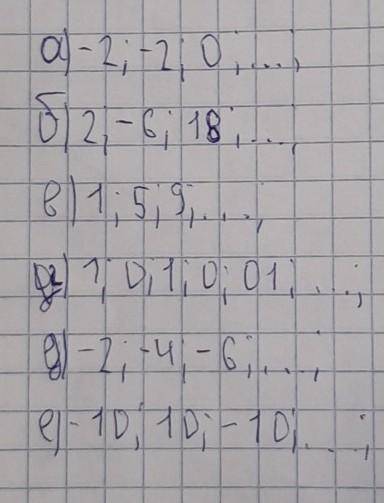 а) -2; -2; 0; ...,
б) 2; -6; 18; ...,
в) 1; 5; 9; ...,
г) 1; 0,1; 0,01; ...;
д) -2; -4; -6; ...;
е) -10; 10; -10; ...;